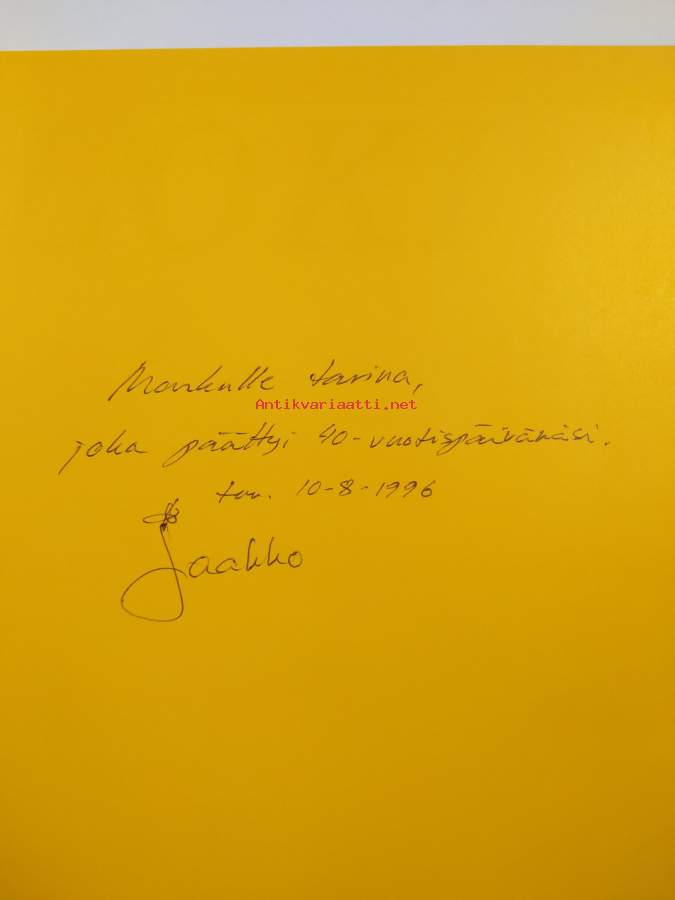 Markulle tarina,
Antikvariaatti.net
joka päättyi 40-vuotispäivänäsi.
tuu. 10-8-1996
Jaakko